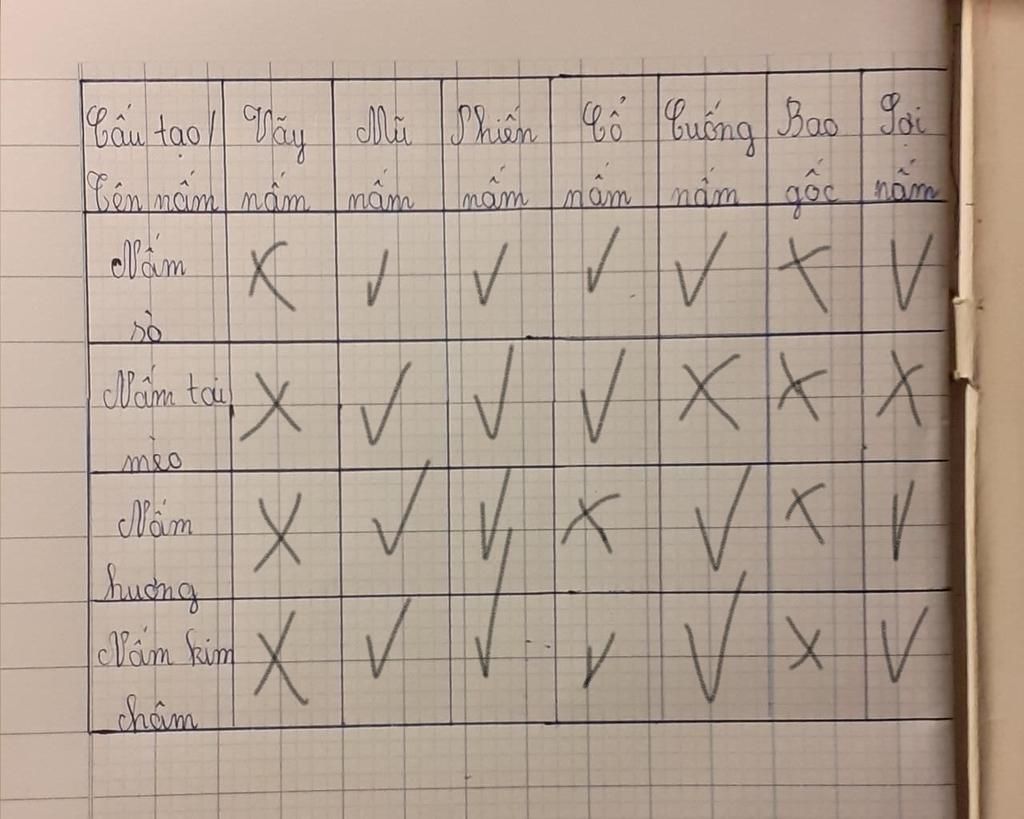 Cấu tạo/ Vãy Mũ Phiến Cổ Cuống Bao Sợi
Tên nấm nấm nấm nấm nấm nấm gốc nấm
Nấm X ✓ ✓ ✓ ✓ X ✓
sò
Nấm tai X ✓ ✓ ✓ X X X
mèo
Nấm X ✓ ✓ X ✓ X ✓
hương
Nấm kim X ✓ ✓ ✓ ✓ X ✓
châm